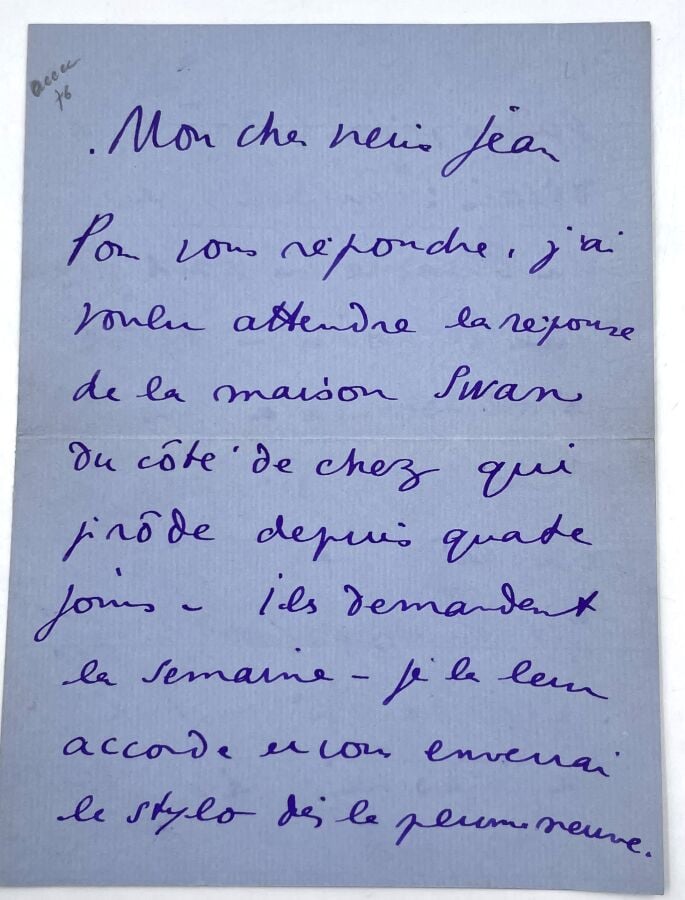 Mon cher Jean
Pour vous répondre, j'ai
voulu attendre la réponse
de la maison Swan
du côté de chez qui
je rôde depuis quatre
jours - ils demandent
la semaine - je la leur
accorde et vous enverrai
le stylo dès la plume neuve.